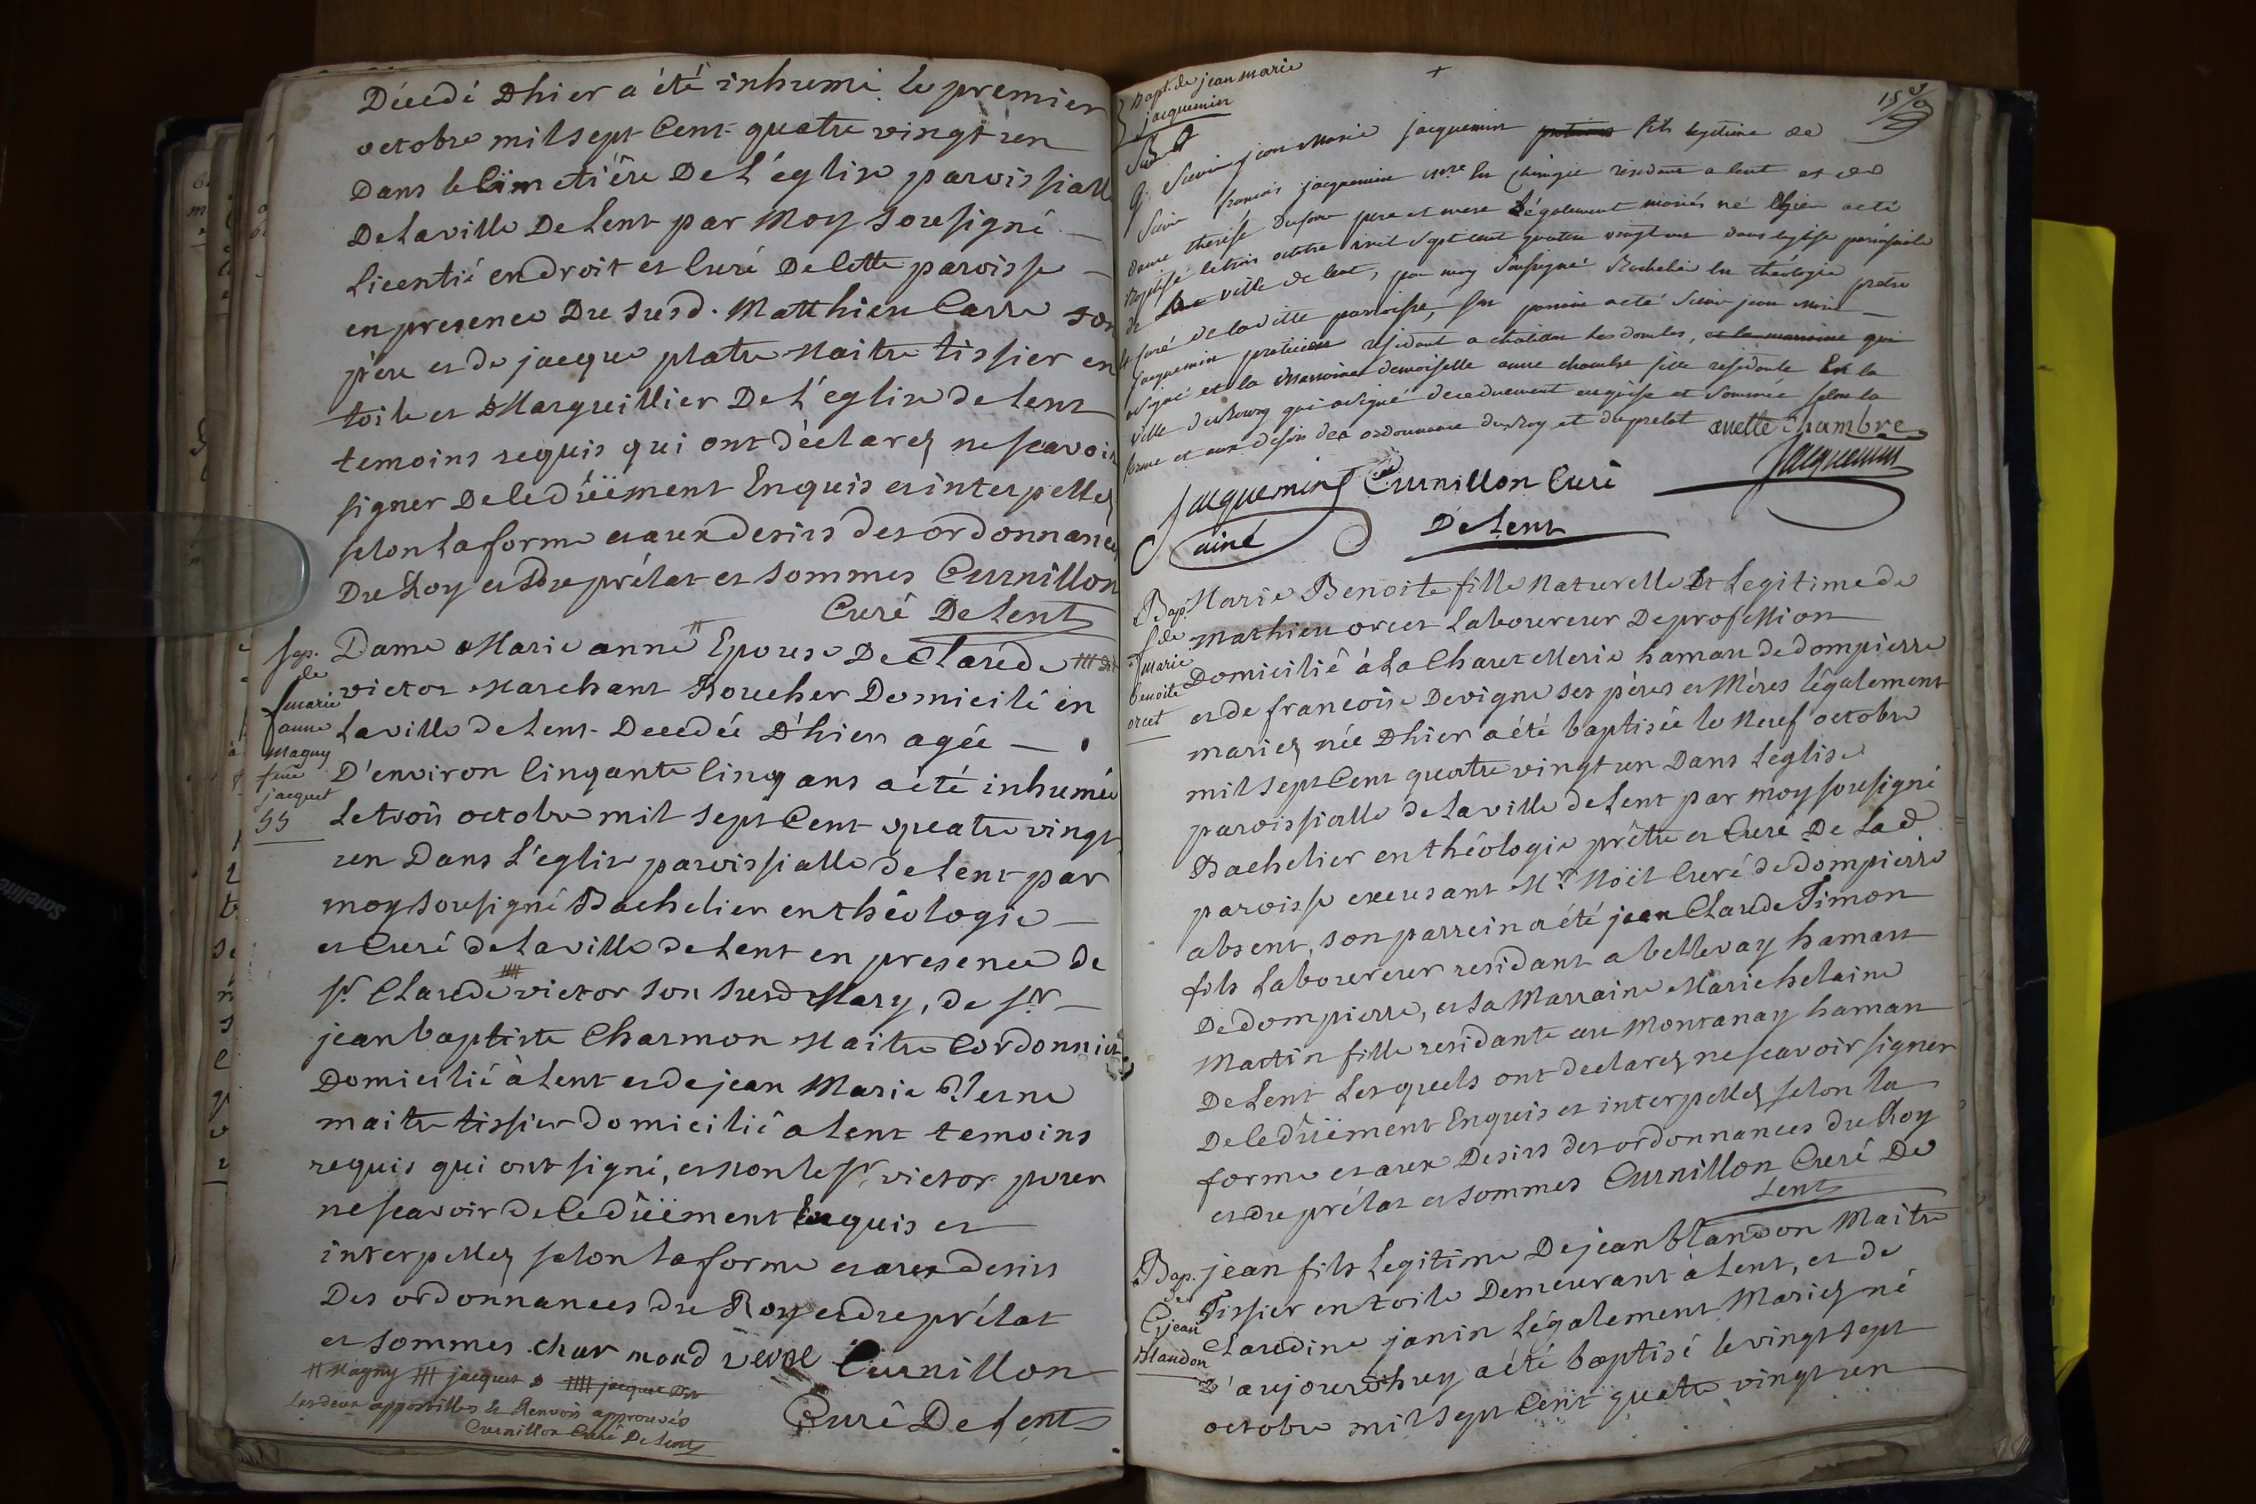 Décedé Dhier a été inhumé le premier
octobre mil sept Cent quatre vingt un
Dans le Cimetière De L'église paroissiall
De La ville De Lent par Moy sousigné
Licentié en droit et Curé De Cette paroisse
en presence Du susd. Matthieu Carre son
père et de jacque platre Maitre tissier en
toile et Marguillier De L'église de Lent
temoins requis qui ont déclarez ne scavoir
signer De ce dûëment Enquis et interpellez
selon la forme et aux desirs des ordonnances
Du Roy et Du prélat et sommes Curnillon
Curé De Lent
Sep. de marie anne Magny feme jacquet 55
Dame Marie anne # Epouse De Claude ### Dit
victor Marchant Boucher Domicilé en
La ville de Lent Decedée D'hier agée
D'environ Cinqante Cinq ans a été inhumée
Le trois octobre mil sept Cent quatre vingt
un Dans L'église paroissialle de Lent par
moy sousigné Bachelier en théologie
et Curé de La ville de Lent en presence de
Sr Claude #### victor son susd Mary, de Sr
jean baptiste Charmon Maitre Cordonnier
Domicilié à Lent et de jean Marie Verne
maitre tissier domicilié a Lent temoins
requis qui ont signé, et non le Sr victor pour
ne scavoir de Ce dûëment Enquis et
interpellez selon la forme et aux desirs
Des ordonnances du Roy et du prélat
et sommes charmond verne Curnillon
Curé De Lent
# Magny ### jacquet #### jacquet Dit
Les deux appostilles et Renvois approuvés
Curnillon Curé De Lent
Bapt. de jean marie
jacquemin
Sieur jean Marie jacquemin fils legitime de
Sieur francois jacquemin Mre En chirurgie residant a lent et de
dame therese Dufour pere et mere Légalement mariés né hier a eté
Baptisé le trois octobre mil sept cent quatre vingt un dans leglise paroissiale
de La ville de lent, par moy soussigné Bachelier en théologie pretre
et curé de la ditte paroisse, Son parrain a eté Sieur jean Marie
jacquemin praticien residant a chatillon les dombes, et la marraine qui
a signé et la Marraine demoiselle anne chambre fille residante En la
ville de Bourg qui a signé de ce duement enquise et sommée selon la
forme et aux desirs des ordonnances du Roy et du prelat annette chambre
Jacquemin
Jacquemin Curnillon Curé
ainé De Lent
Bap. de marie benoite orcet
Marie Benoite fille Naturelle Et Legitime de
Mathieu orcet Laboureur De profession
Domicilié à La Charetellerie hamau de dompierre
et de francoise Devigne ses pères et Mères légalement
mariez née Dhier a été baptisée le Neuf octobre
mil sept Cent quatre vingt un Dans L'église
paroissialle de La ville de Lent par moy sousigné
Bachelier en théologie prêtre et Curé De Lad
paroisse excusant Mr Noël Curé de dompierre
absent, son parrein a été jean Claude Timon
fils Laboureur residant a bellevay hamau
De dompierre, et sa Marraine Marie helaine
Martin fille residante au Montanay hamau
De Lent Lesquels ont declarez ne scavoir signer
De ce dûëment Enquis et interpellez selon la
forme et aux Desirs des ordonnances du Roy
et du prélat et sommes Curnillon Curé De
Lent
Bap. de jean blandon
jean fils Legitime De jean blandon Maitre
Tissier en toile Demeurant à Lent, et de
Claudine janin Légalement Mariez né
D'aujourdhuy a été baptisé le vingt sept
octobre mil sept Cent quatre vingt un